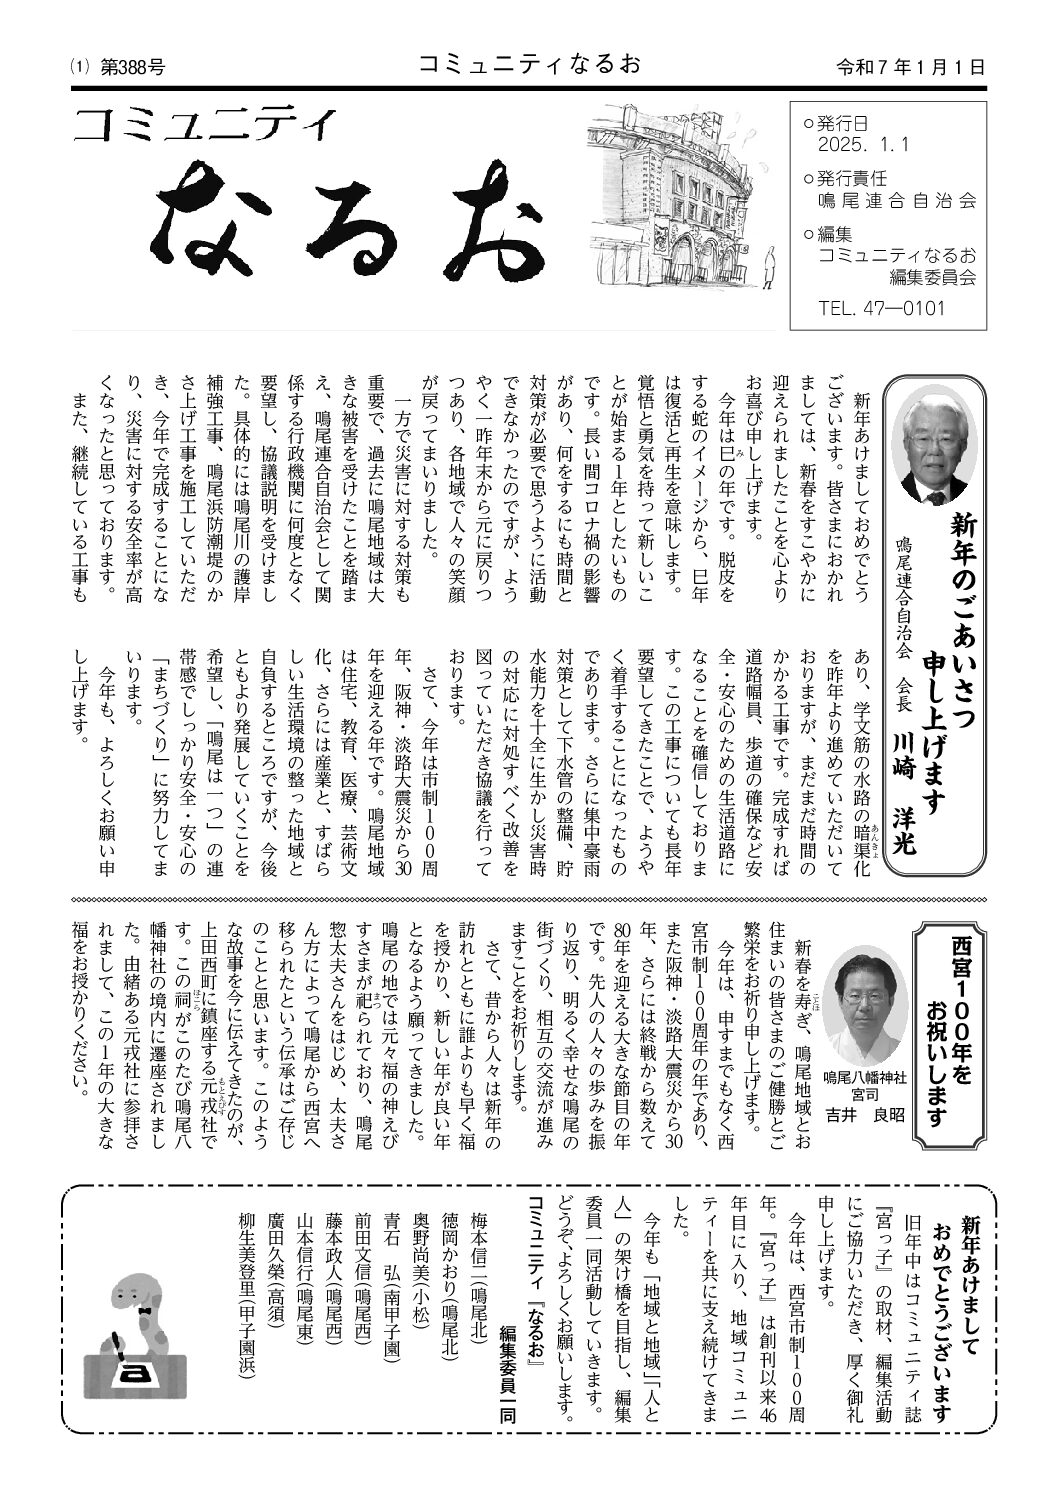 ⑴ 第388号
コミュニティなるお
令和７年１月１日
コミュニティ
なるお
○発行日
2025. 1. 1
○発行責任
鳴尾連合自治会
○編集
コミュニティなるお
編集委員会
TEL. 47―0101
新年のごあいさつ
申し上げます
鳴尾連合自治会　会長　川崎　洋光
新年あけましておめでとう
ございます。皆さまにおかれ
ましては、新春をすこやかに
迎えられましたことを心より
お喜び申し上げます。
今年は巳み の年です。脱皮を
する蛇のイメージから、巳年
は復活と再生を意味します。
覚悟と勇気を持って新しいこ
とが始まる１年としたいもの
です。長い間コロナ禍の影響
があり、何をするにも時間と
対策が必要で思うように活動
できなかったのですが、よう
やく一昨年末から元に戻りつ
つあり、各地域で人々の笑顔
が戻ってまいりました。
一方で災害に対する対策も
重要で、過去に鳴尾地域は大
きな被害を受けたことを踏ま
え、鳴尾連合自治会として関
係する行政機関に何度となく
要望し、協議説明を受けまし
た。具体的には鳴尾川の護岸
補強工事、鳴尾浜防潮堤のか
さ上げ工事を施工していただ
き、今年で完成することにな
り、災害に対する安全率が高
くなったと思っております。
また、継続している工事も
あり、学文筋の水路の暗渠あんきょ化
を昨年より進めていただいて
おりますが、まだまだ時間の
かかる工事です。完成すれば
道路幅員、歩道の確保など安
全・安心のための生活道路に
なることを確信しておりま
す。この工事についても長年
要望してきたことで、ようや
く着手することになったもの
であります。さらに集中豪雨
対策として下水管の整備、貯
水能力を十全に生かし災害時
の対応に対処すべく改善を
図っていただき協議を行って
おります。
さて、今年は市制１００周
年、阪神・淡路大震災から30
年を迎える年です。鳴尾地域
は住宅、教育、医療、芸術文
化、さらには産業と、すばら
しい生活環境の整った地域と
自負するところですが、今後
ともより発展していくことを
希望し、「鳴尾は一つ」の連
帯感でしっかり安全・安心の
「まちづくり」に努力してま
いります。
今年も、よろしくお願い申
し上げます。
西宮１００年を
お祝いします
鳴尾八幡神社
宮司
吉井　良昭
新春を寿ことほぎ、鳴尾地域とお
住まいの皆さまのご健勝とご
繁栄をお祈り申し上げます。
今年は、申すまでもなく西
宮市制１００周年の年であり、
また阪神・淡路大震災から30
年、さらには終戦から数えて
80年を迎える大きな節目の年
です。先人の人々の歩みを振
り返り、明るく幸せな鳴尾の
街づくり、相互の交流が進み
ますことをお祈りします。
さて、昔から人々は新年の
訪れとともに誰よりも早く福
を授かり、新しい年が良い年
となるよう願ってきました。
鳴尾の地では元々福の神えび
すさまが祀まつられており、鳴尾
惣太夫さんをはじめ、太夫さ
ん方によって鳴尾から西宮へ
移られたという伝承はご存じ
のことと思います。このよう
な故事を今に伝えてきたのが、
上田西町に鎮座する元戎もとえびす社で
す。この祠ほこらがこのたび鳴尾八
幡神社の境内に遷座されまし
た。由緒ある元戎社に参拝さ
れまして、この１年の大きな
福をお授かりください。
新年あけまして
おめでとうございます
旧年中はコミュニティ誌
『宮っ子』の取材、編集活動
にご協力いただき、厚く御礼
申し上げます。
今年は、西宮市制１００周
年。『宮っ子』は創刊以来46
年目に入り、地域コミュニ
ティーを共に支え続けてきま
した。
今年も「地域と地域」「人と
人」の架け橋を目指し、編集
委員一同活動していきます。
どうぞ、よろしくお願いします。
コミュニティ『なるお』
編集委員一同
梅本信二（鳴尾北）
徳岡かおり（鳴尾北）
奥野尚美（小松）
青石　弘（南甲子園）
前田文信（鳴尾西）
藤本政人（鳴尾西）
山本信行（鳴尾東）
廣田久榮（高須）
柳生美登里（甲子園浜）